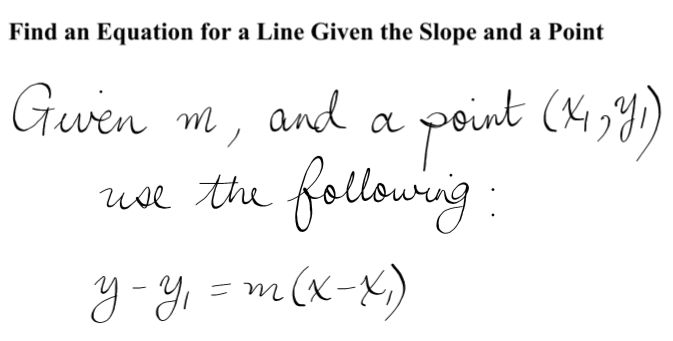 Find an Equation for a Line Given the Slope and a Point
Given m, and a point (x₁, y₁)
use the following:
y - y₁ = m(x - x₁)